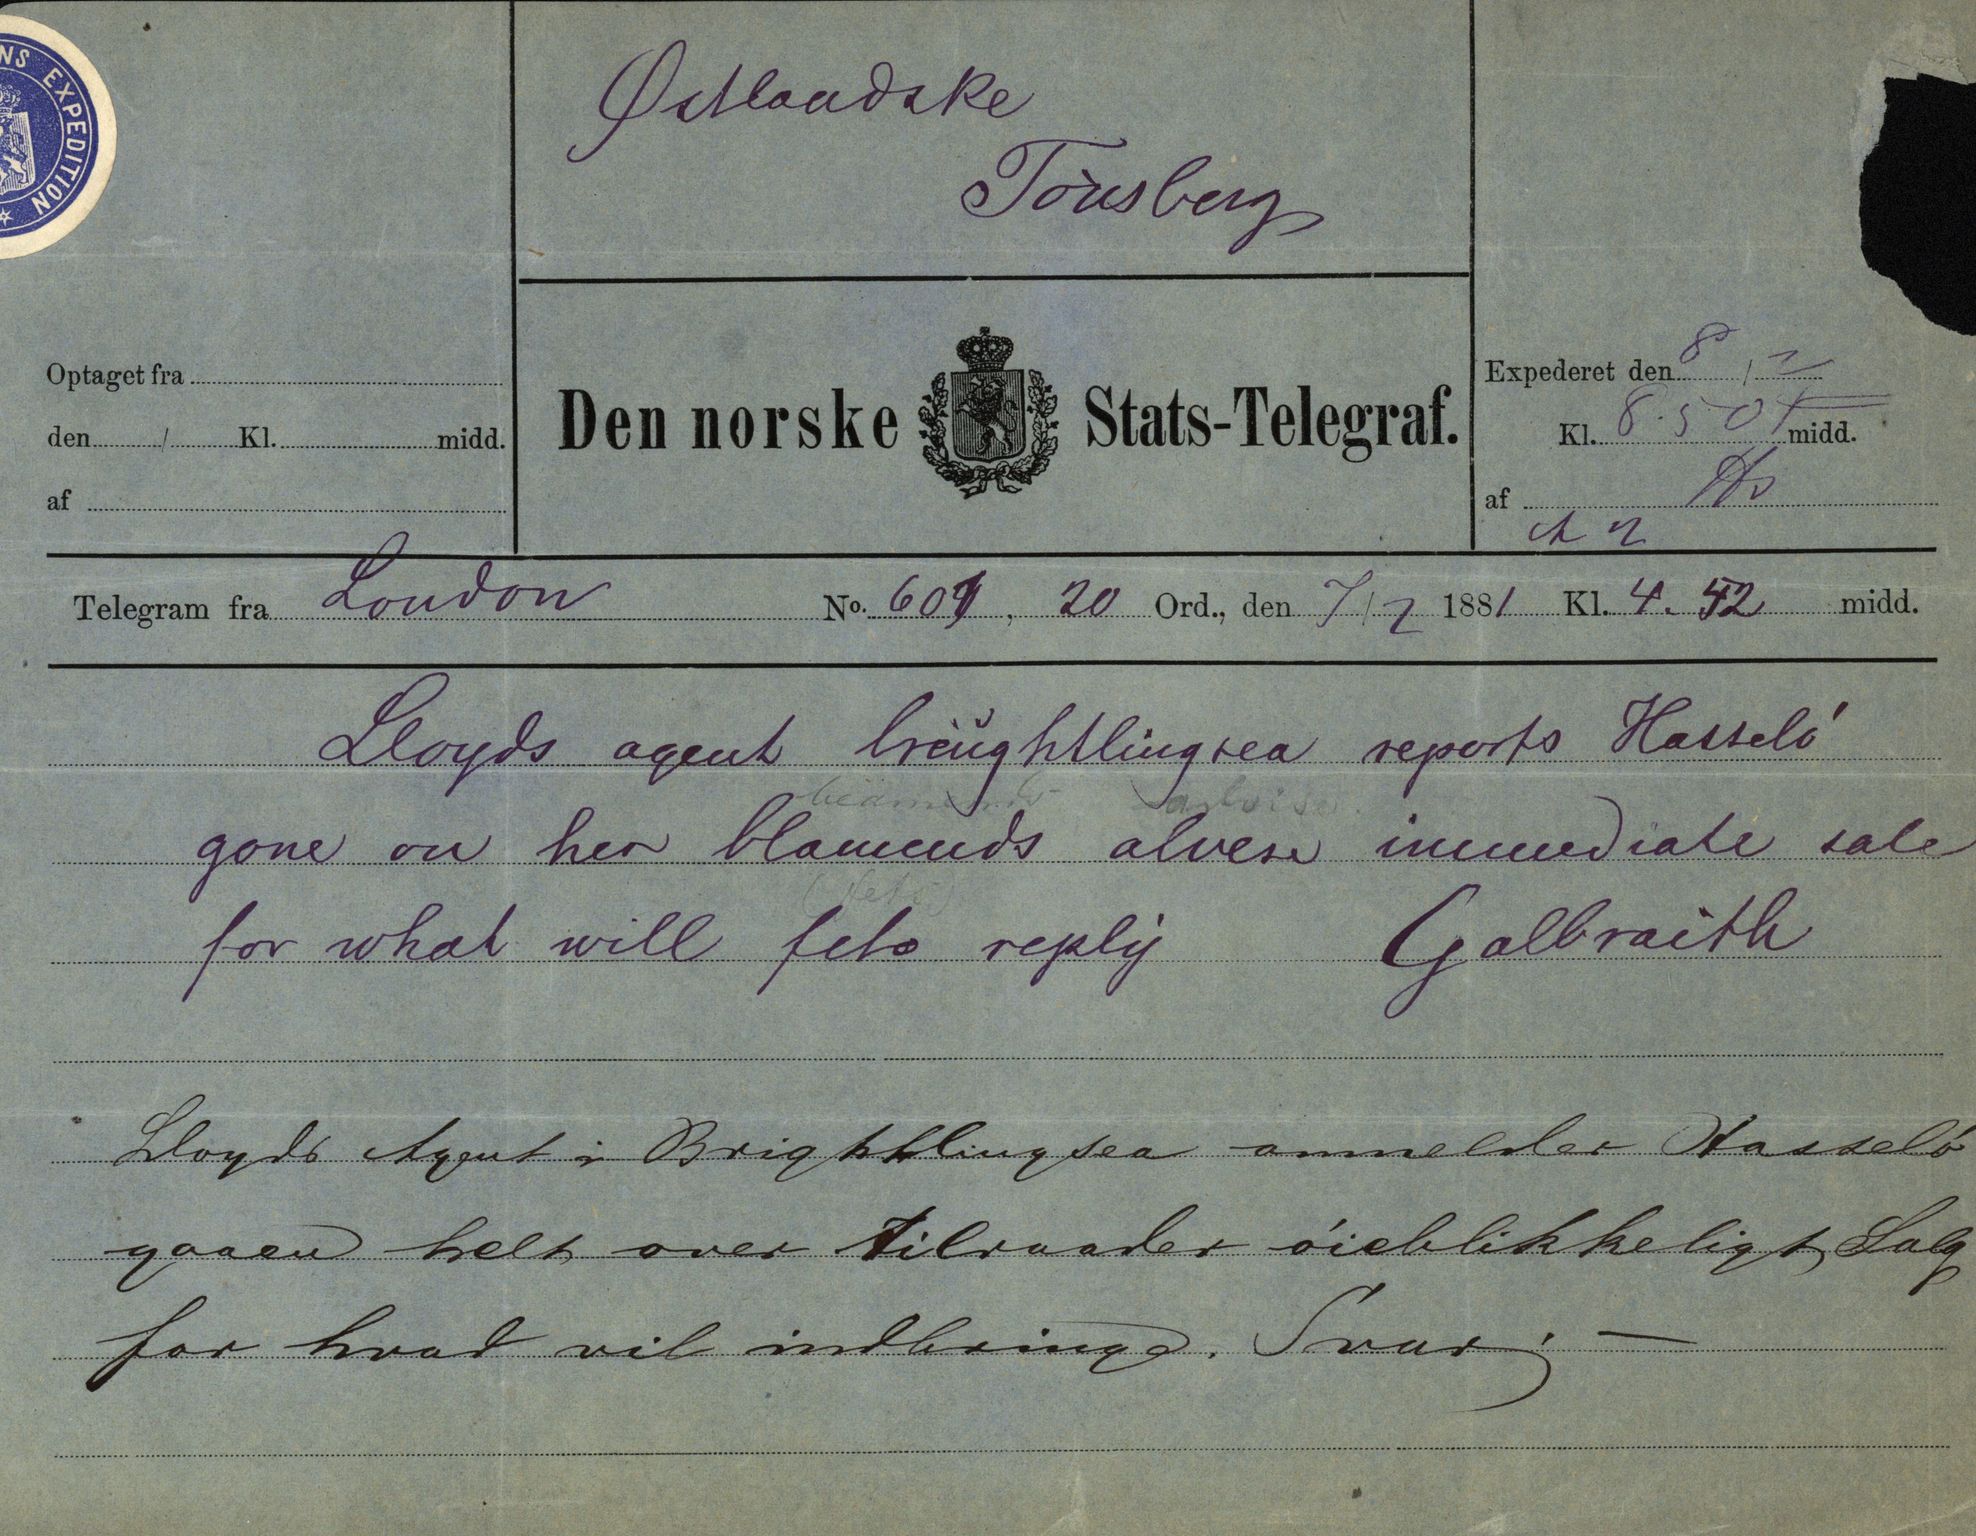 NS EXPEDITION
Østlandske
Tönsberg
Optaget fra
den / Kl. midd.
af
Den norske Stats-Telegraf.
Expederet den 8/2
Kl. 8.50 f midd.
af
Telegram fra London No. 601, 20 Ord., den 7/2 1881 Kl. 4.52 midd.
Lloyds agent breughtlingsea reports Hasselö
gone on her blamends alvese immediate sale
for what will fets reply Galbraith
Lloyds Agent i Brightlingsea anmelder Hasselö
gaaen helt over tilraader öieblikkeligt Salg
for hvad vil indbringe. Svar; —